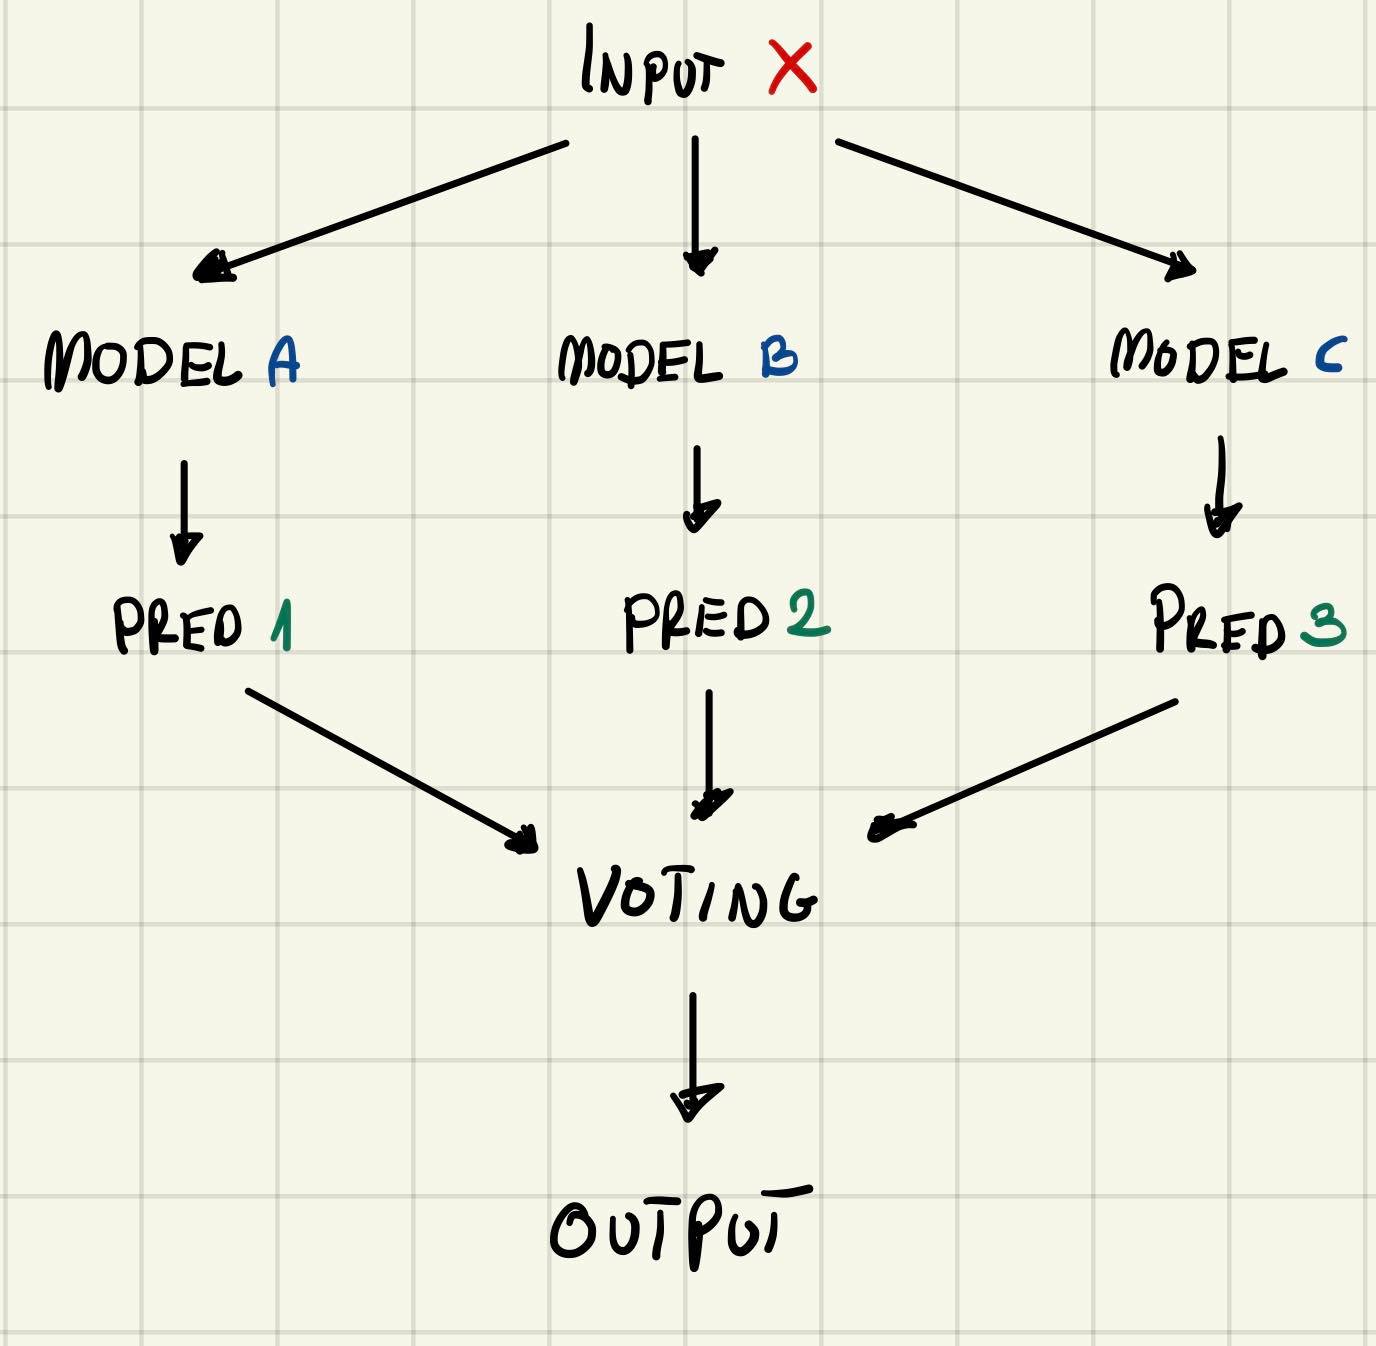 INPUT X
MODEL A MODEL B MODEL C
PRED 1 PRED 2 PRED 3
VOTING
OUTPUT